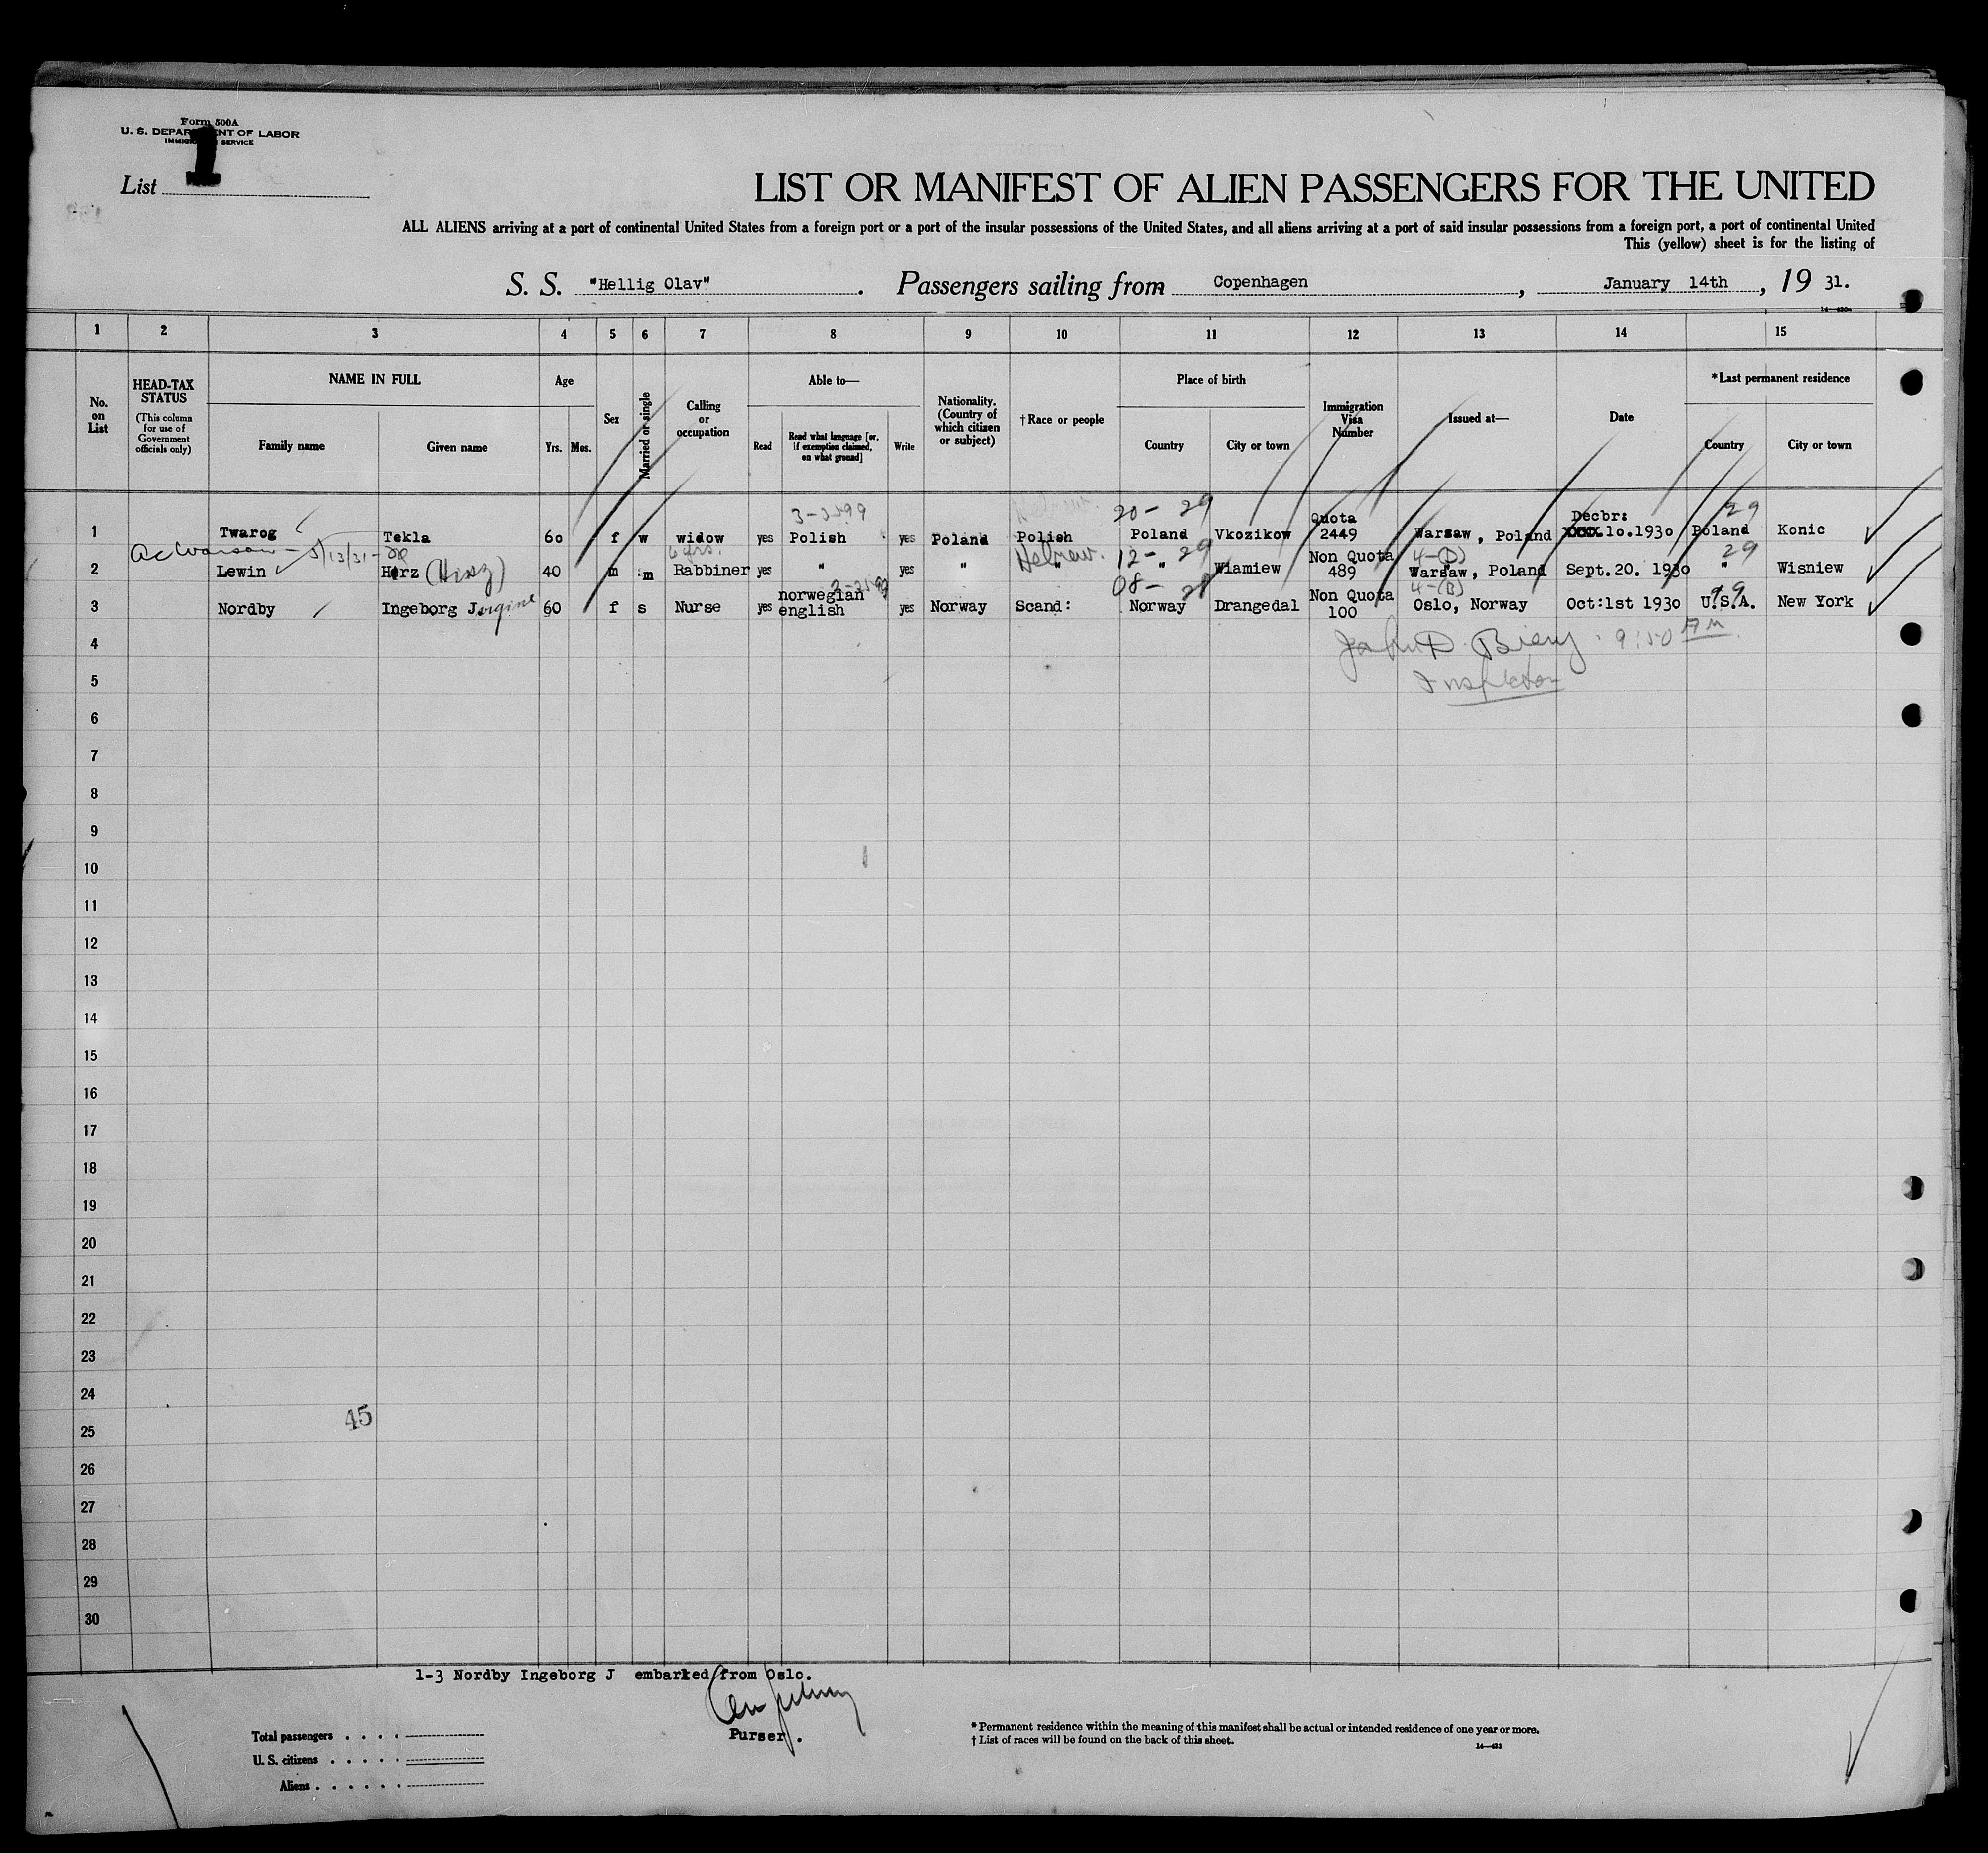 Form 500A
U. S. DEPARTMENT OF LABOR
IMMIGRATION SERVICE
List 1
LIST OR MANIFEST OF ALIEN PASSENGERS FOR THE UNITED
ALL ALIENS arriving at a port of continental United States from a foreign port or a port of the insular possessions of the United States, and all aliens arriving at a port of said insular possessions from a foreign port, a port of continental United
This (yellow) sheet is for the listing of
S. S. "Hellig Olav". Passengers sailing from Copenhagen, January 14th, 19 31.
1 2 3 4 5 6 7 8 9 10 11 12 13 14 15
No. on List
HEAD-TAX STATUS (This column for use of Government officials only)
NAME IN FULL Family name Given name
Age Yrs. Mos.
Sex
Married or single
Calling or occupation
Able to— Read Read what language [or, if exemption claimed, on what ground] Write
Nationality. (Country of which citizen or subject)
†Race or people
Place of birth Country City or town
Immigration Visa Number
Issued at—
Date
*Last permanent residence Country City or town
3- 20- 29 Quota Decbr: 29
1 Twarog Tekla 60 f w widow yes Polish yes Poland Polish Poland Vkozikow 2449 Warsaw, Poland XXXX.10.1930 Poland Konic
5/13/31 6 yrs. Hebrew. 12- 29 Non Quota 4-(D) 29
2 Lewin Herz (Hirsz) 40 m m Rabbiner yes " yes " " " Wiamiew 489 Warsaw, Poland Sept.20. 1930 " Wisniew
norwegian 08- Non Quota 4-(B)
3 Nordby Ingeborg Jorgine 60 f s Nurse yes english yes Norway Scand: Norway Drangedal 100 Oslo, Norway Oct:1st 1930 U.S.A. New York
4 John D. 9:50 AM
5 Inspector
6
7
8
9
10
11
12
13
14
15
16
17
18
19
20
21
22
23
24
45
25
26
27
28
29
30
1-3 Nordby Ingeborg J embarked from Oslo.
Purser.
Total passengers . . . .
U. S. citizens . . . . .
Aliens . . . . . .
* Permanent residence within the meaning of this manifest shall be actual or intended residence of one year or more.
† List of races will be found on the back of this sheet.
14—421